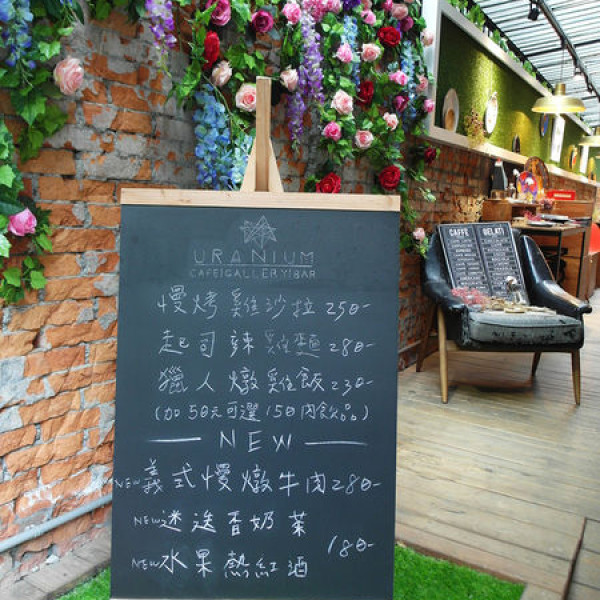 URANIUM
CAFE|GALLERY|BAR
慢烤雞沙拉 250-
起司辣雞麵 280-
獵人燉雞飯 230-
(加50元可選150內飲品)
NEW
NEW 義式慢燉牛肉 280-
NEW 迷迭香奶茶
180-
NEW 水果熱紅酒
CAFFE
GELATI